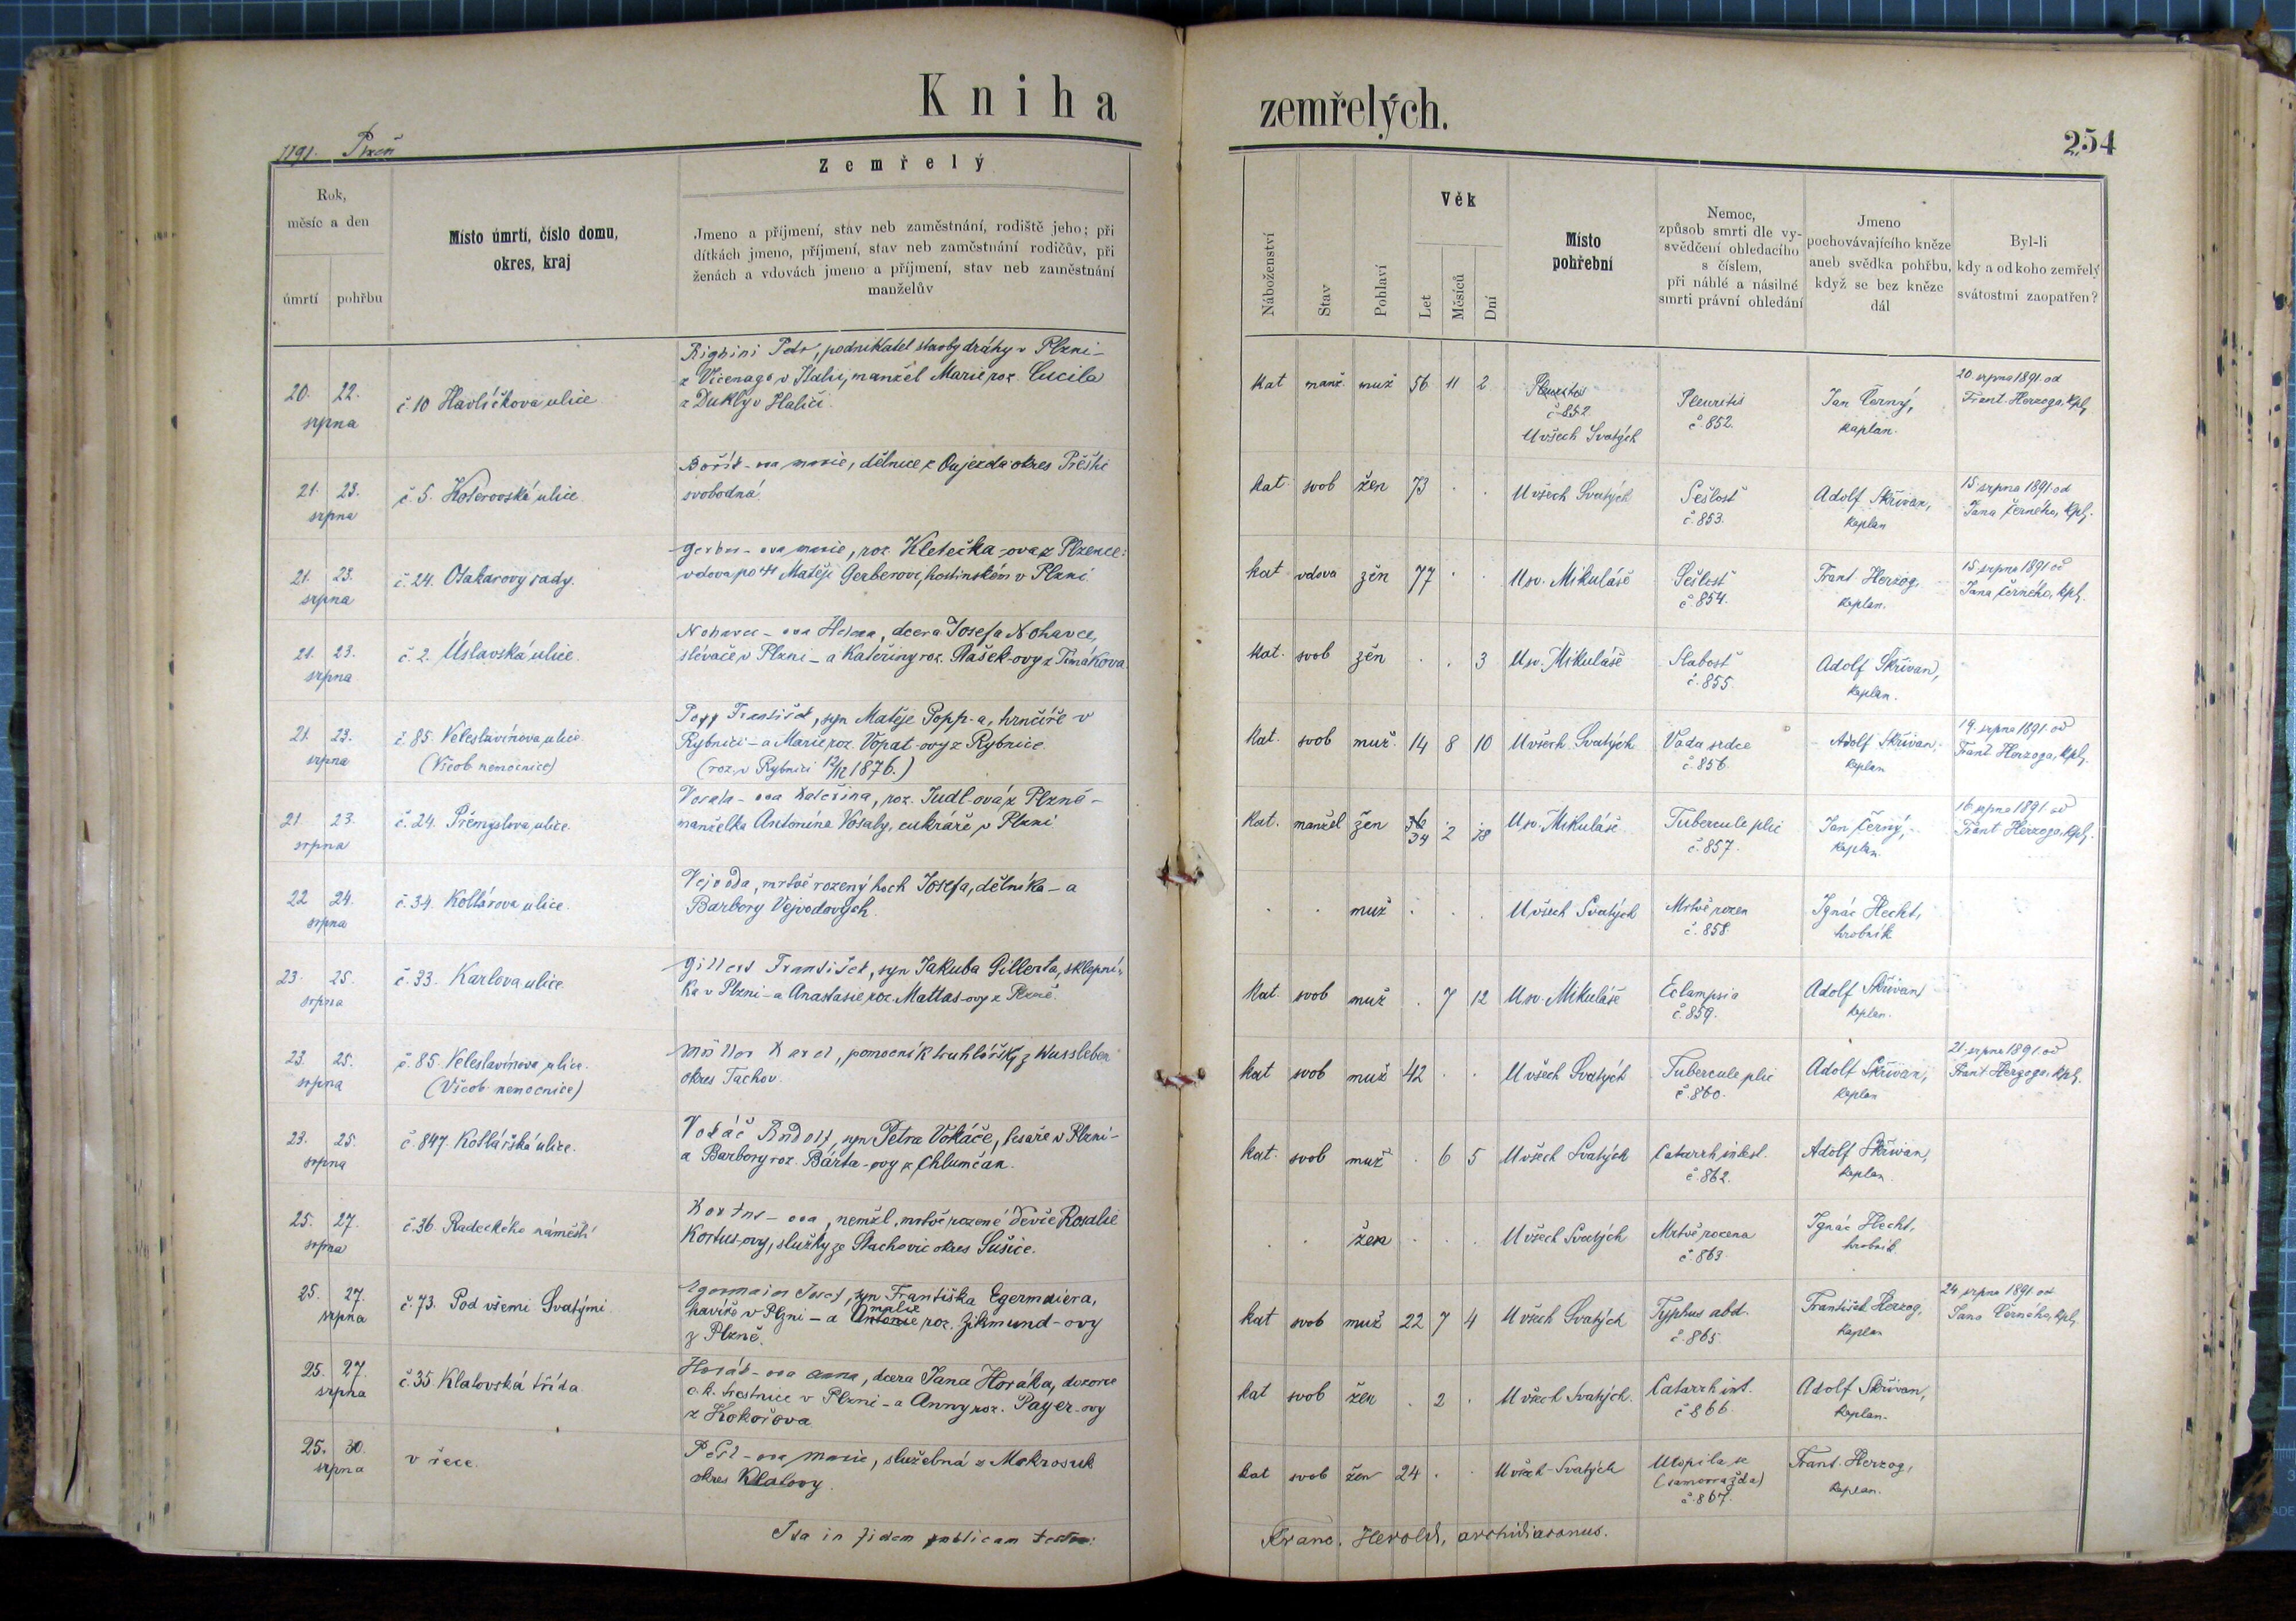 Kniha
zemřelých.
254
1891. Plzeň
Zemřelý
Rok,
měsíc a den
úmrtí
pohřbu
Místo úmrtí, číslo domu,
okres, kraj
Jmeno a příjmení, stav neb zaměstnání, rodiště jeho; při
dítkách jmeno, příjmení, stav neb zaměstnání rodičův, při
ženách a vdovách jmeno a příjmení, stav neb zaměstnání
manželův
Náboženství
Stav
Pohlaví
Věk
Let
Měsíců
Dní
Místo
pohřební
Nemoc,
způsob smrti dle vy-
svědčení ohledacího
s číslem,
při náhlé a násilné
smrti právní ohledání
Jmeno
pochovávajícího kněze
aneb svědka pohřbu,
když se bez kněze
dál
Byl-li
kdy a od koho zemřelý
svátostmi zaopatřen?
20. 22.
srpna
č. 10 Havlíčkova ulice
Righini Petr, podnikatel stavby dráhy v Plzni –
z Vicenago v Italii, manžel Marie roz. Cucila
z Dukly v Haliči.
kat manž. muž 56 11 2
Pleuritis
č. 852.
U všech Svatých
Pleuritis
č. 852.
Jan Černý,
kaplan.
20. srpna 1891. od
Frant. Herzoga, kpl.
21. 23.
srpna
č. 5. Koterovská ulice
Bořík-ova Marie, dělnice z Oujezda okres Přeštic
svobodná
kat. svob žen 73 . .
U všech Svatých
Sešlosť
č. 853.
Adolf Skřivan,
kaplan
15. srpna 1891. od
Jana Černého, kpl.
21. 23.
srpna
č. 24. Otakarovy sady.
Gerber-ova Marie, roz. Kletečka-ova z Plzence:
vdova po †† Matěji Gerberovi, hostinském v Plzni
kat vdova žen 77 . .
U sv. Mikuláše
Sešlosť
č. 854.
Frant. Herzog,
kaplan.
15. srpna 1891 od
Jana Černého, kpl.
21. 23.
srpna
č. 2. Úslavská ulice.
Nohavec-ova Helena, dcera Josefa Nohavce,
slévače v Plzni – a Kateřiny roz. Mašek-ovy z Timákova
kat. svob žen . . 3
U sv. Mikuláše
Slabosť
č. 855.
Adolf Skřivan,
kaplan.
21. 23.
srpna
č. 85. Veleslavínova ulice.
(Všeob. nemocnice)
Popp František, syn Matěje Popp-a, hrnčíře v
Rybnici – a Marie roz. Vopat-ovy z Rybnice.
(roz. v Rybnici 12/12 1876.)
kat. svob muž. 14 8 10
U všech Svatých
Vada srdce
č. 856.
Adolf Skřivan,
kaplan
19. srpna 1891. od
Frant. Herzoga, kpl.
21 23.
srpna
č. 24. Přemyslova ulice.
Vosala-ova Kateřina, roz. Judl-ová z Plzně –
manželka Antonína Vosaly, cukráře v Plzni
kat. manžel žen 36 34 2 18
U sv. Mikuláše.
Tubercule plic
č. 857.
Jan Černý,
kaplan.
16. srpna 1891. od
Frant. Herzoga, kpl.
22 24.
srpna
č. 34. Kollárova ulice.
Vejvoda, mrtvě rozený hoch Josefa, dělníka – a
Barbory Vejvodových.
. . muž . . .
U všech Svatých
Mrtvě rozen
č. 858.
Ignác Hecht,
hrobník
23. 25.
srpna
č. 33. Karlova ulice
Gillert František, syn Jakuba Gillerta, sklepní-
ka v Plzni – a Anastasie roz. Mattas-ovy z Plzně.
kat. svob muž . 7 12
U sv. Mikuláše
Eclampsia
č. 859.
Adolf Skřivan,
kaplan.
23. 25.
srpna
č. 85. Veleslavínova ulice.
(Všeob. nemocnice)
Müller Karel, pomocník truhlářský z Wussleben
okres Tachov.
kat svob muž 42 . .
U všech Svatých
Tubercule plic
č. 860.
Adolf Skřivan,
kaplan
21. srpna 1891. od
Frant. Herzoga, kpl.
23. 25.
srpna
č. 847. Kotlářská ulice.
Vokáč Rudolf, syn Petra Vokáče, tesaře v Plzni –
a Barbory roz. Bárta-ovy z Chlumčan.
kat. svob muž . 6 5
U všech Svatých
Catarrh intest.
č. 862.
Adolf Skřivan,
kaplan.
25. 27.
srpna
č. 36. Radeckého náměstí
Kortus-ova, nemžl, mrtvě rozené děvče Rosalie
Kortus-ovy, služky ze Stachovic okres Sušice.
. . žen . . .
U všech Svatých
Mrtvě rozena
č. 863
Ignác Hecht,
hrobník.
25. 27.
srpna
č. 73. Pod všemi Svatými
Egermaier Josef, syn Františka Egermaiera,
havíře v Plzni – a Antonie Amalie roz. Zikmund-ovy
z Plzně.
kat svob muž 22 7 4
U všech Svatých
Typhus abd.
č. 865.
František Herzog,
kaplan
24. srpna 1891. od
Jana Černého, kpl.
25. 27.
srpna
č. 35 Klatovská třída
Horák-ova Anna, dcera Jana Horáka, dozorce
c. k. trestnice v Plzni – a Anny roz. Payer-ovy
z Kokořova
kat svob žen . 2 .
U všech Svatých.
Catarrh int.
č. 866.
Adolf Skřivan,
kaplan.
25. 30.
srpna
v řece.
-ova Marie, služebná z Mokrosuk
okres Klatovy.
kat svob žen 24 . .
U všech Svatých
Utopila se
(samovražda)
č. 867.
Frant. Herzog,
kaplan.
Ita in fidem publicam testor:
Franc. Herold, archidiaconus.